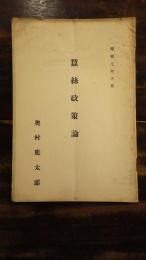 昭和七年十月
蠶絲政策論
奥村鹿太郎